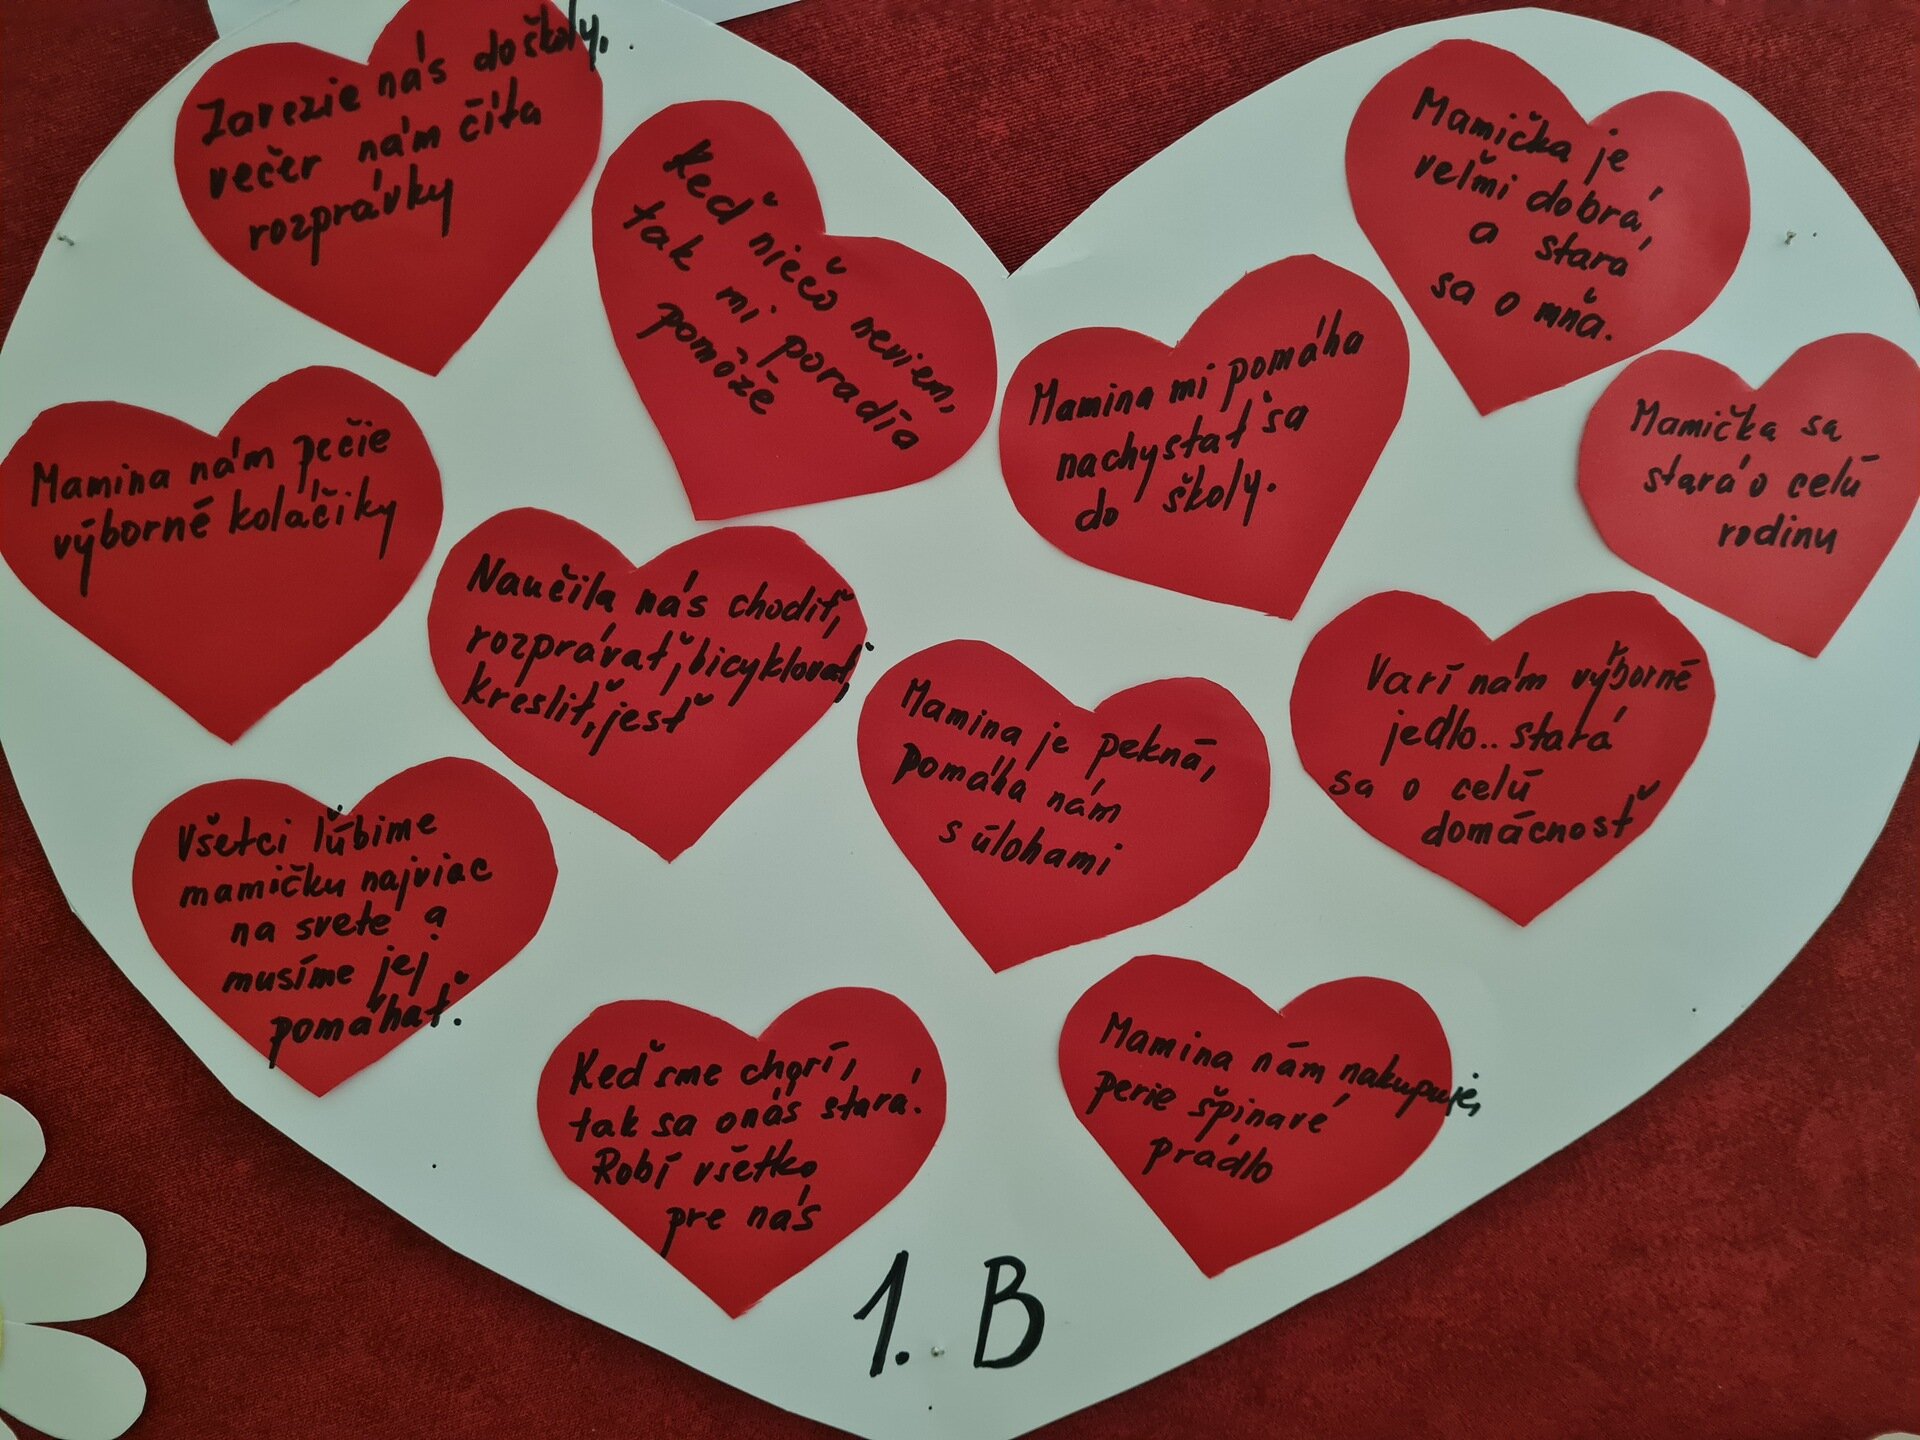 Zavezie nás do školy,
večer nám číta
rozprávky
Keď niečo neviem,
tak mi poradia
pomôže
Mamička je
veľmi dobrá,
a stará
sa o mňa.
Mamina mi pomáha
nachystať sa
do školy.
Mamička sa
stará o celú
rodinu
Mamina nám pečie
výborné koláčiky
Naučila nás chodiť,
rozprávať, bicyklovať,
kresliť, jesť
Mamina je pekná,
pomáha nám
s úlohami
Varí nám výborné
jedlo.. stará
sa o celú
domácnosť
Všetci ľúbime
mamičku najviac
na svete a
musíme jej
pomáhať.
Keď sme chorí,
tak sa o nás stará.
Robí všetko
pre nás
Mamina nám nakupuje,
perie špinavé
prádlo
1. B